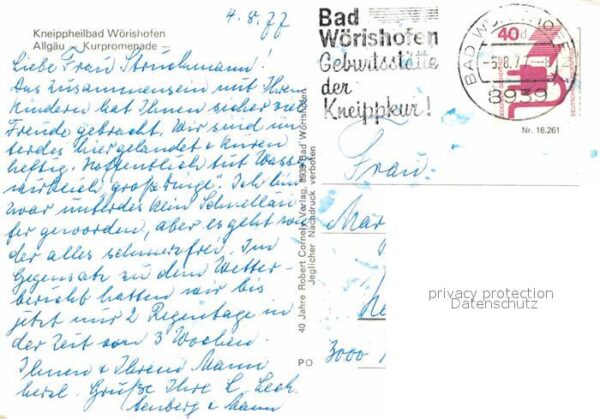 4.8.77
Kneippheilbad Wörishofen
Allgäu – Kurpromenade –
Liebe Frau
Das Zusammensein mit Ihren
Kindern hat Ihnen sicher viel
Freude gebracht. Wir sind un
terdes hier gelandet & kuren
heftig. Hoffentlich tut Wasser
wirklich große Dinge". Ich bin
zwar unterdes kein Schnelläu
fer geworden, aber es geht wie
der alles schmerzfrei. Im
Gegensatz zu dem Wetter-
bericht hatten wir bis
jetzt nur 2 Regentage in
der Zeit von 3 Wochen.
Ihnen & Ihrem Mann
herzl. Grüße Ihre
& Mann
40 Jahre Robert Cornely Verlag, 8939 Bad Wörishofen
Jeglicher Nachdruck verboten
PO
Bad
Wörishofen
Geburtsstätte
der
Kneippkur!
BAD WÖRISHOFEN
-5.8.77
8939
40
Nr. 16.261
Frau
Mar
3000
privacy protection
Datenschutz